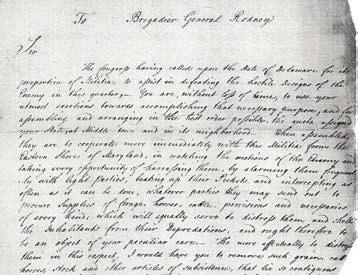 To Brigadier General Rodney
Sir
The Congress having called upon the State of Delaware for its
proportion of Militia, to assist in defeating the hostile designs of the
Enemy in this quarter, You are, without loss of time, to use your
utmost exertions towards accomplishing that necessary purpose, and for
assembling and arranging in the best order possible, the men assigned
your State, at Middle town and in its neighborhood. When assembled,
they are to cooperate more immediately with the Militia from the
Eastern Shore of Maryland, in watching the motions of the Enemy and
taking every opportunity of harrassing them, by alarming them frequent-
ly with light parties, beating up their Pickets and intercepting as
often as it can be done, whatever parties they may send out to
procure Supplies of forage, horses, cattle, provisions and necessaries
of every kind; which will equally serve to distress them and secure
the Inhabitants from their Depredations, and ought therefore to
be an object of your peculiar care. The more effectually to distress
them in this respect, I would have you to remove such grain
horses, Stock and other articles of Subsistence, that lie so contiguous